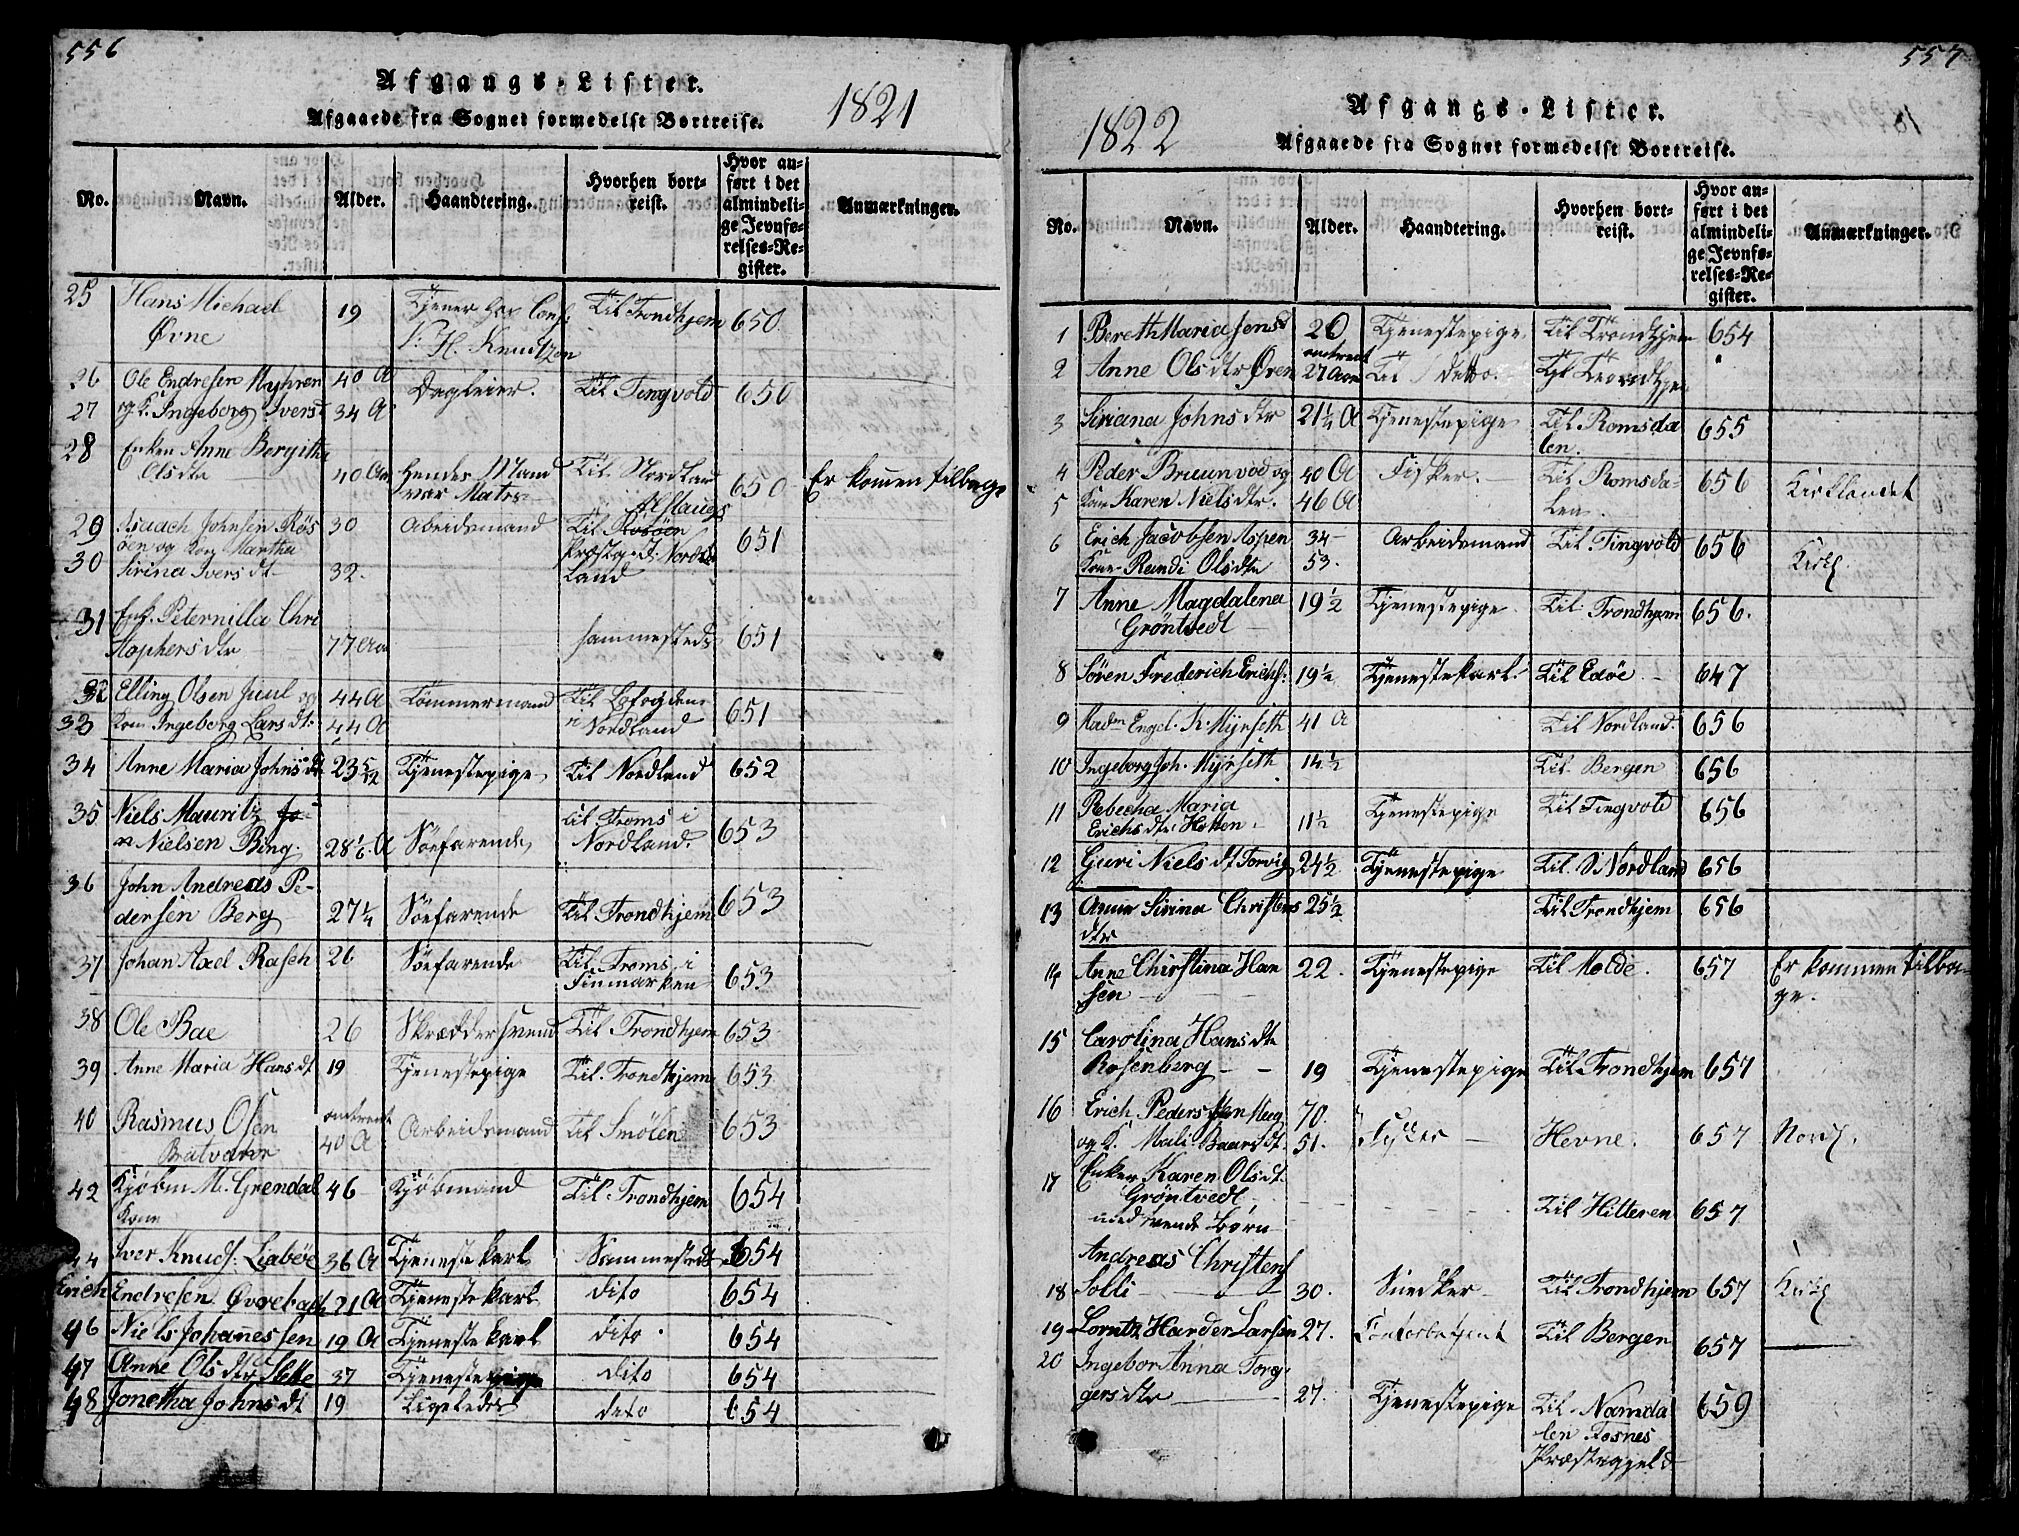 556
Afgangs-Lister.
Afgaaede fra Sognet formedelst Bortreise.
1821
No. Navn. Alder. Haandtering. Hvorhen bortreist. Hvor anført i det almindelige Jevnførelses-Register. Anmærkninger.
25 Hans Michael Øvne 19 Tjener hos Cons: N. H. Knudtzon Til Trondhjem 650
26 Ole Endresen Myhren 40 A Dagleier. Til Tingvold 650
27 og K. Ingeborg Iversd 34 A
28 Enken Anne Bergithe Olsdtr 40 Aar Hendes Mand var Matros Til Nordland 650 Er kommen tilbage
29 Isaach Johnsen Rös öen og Kone Martha 30 Abeidsmand Til Alstaugs Præstegd: Nordland 651
30 Sirina Iversdt 32.
31 Enk. Peternilla Christophersdtr 77 Aar sammesteds 651
32 Elling Olsen Juul og 44 A Tömmermand Til Lofoden i Nordland 651
33 Kone Ingeborg Larsdt: 44 A
34 Anne Maria Johnsdt 23 5/12 Tjenestepige Til Nordland 652
35 Niels Mauritz Nielsen Bing. 28 1/6 A Söefarende Til Troms i Nordland. 653
36 John Andreas Pedersen Berg 27 1/4 Söefarende Til Trondhjem 653
37 Johan Axel Rasch 26 Söefarende Til Troms i Finmarken 653
38 Ole Bae 26 Skræddersvend Til Trondhjem 653
39 Anne Maria Hansdt 19 Tjenestepige Til Trondhjem 653
40 Rasmus Olsen Bratvær omtrent 40 A Arbeidsmand Til Smölen 653
42 Kjöbm M. Grendal Kone 46 Kjöbmand Til Trondhjem 654
44 Iver Knuds: Liaböe 36 A Tjenestekarl Sammesteds 654
Erich Endresen Øverbach 21 A Tjenestekarl dito 654
46 Niels Johannessen 19 A Tjenestekarl dito 654
47 Anne Olsdtr Slette 37 Tjenestepige dito 654
48 Jonetha Johnsdt 19 Ligeledes dito 654
557
Afgangs-Lister.
Afgaaede fra Sognet formedelst Bortreise.
1822
No. Navn. Alder. Haandtering. Hvorhen bortreist. Hvor anført i det almindelige Jevnførelses-Register. Anmærkninger.
1 Bereth Maria Jensd 20 Tjenestepige Til Trondhjem 654
2 Anne Olsdtr Øren omtrent 27 Aar detto. Til Trondhjem
3 Siriana Johnsdtr 21 1/4 A Tjenestepige Til Romsdalen. 655
4 Peder Bruunvod og 40 A Fisker. Til Romsdalen. 656 Kirklandet
5 Kone Karen Nielsdtr. 46 A
6 Erich Jacobsen Aspen 34 Arbeidsmand Til Tingvold 656 Kirkl
Kone Randi Olsdtr 53.
7 Anne Magdalena Gröntvedt 19 1/2 Tjenestepige Til Trondhjem 656.
8 Sören Frederich Erichs: 19 1/2 Tjenestekarl Til Edöe 647
9 Madm Engel K. Myrseth 41 A Til Nordland. 656
10 Ingeborg Joh. Myrseth 14 1/2 Til Bergen 656
11 Rebecha Maria Erichsdtr Hotten 11 1/2 Tjenestepige Til Tingvold 656
12 Guri Nielsdt Torvig 24 1/2 Tjenestepige Til Nordland 656
13 Anne Sirina Christensdtr 25 1/2 Til Trondhjem 656
14 Anne Christina Hansen 22. Tjenestepige Til Molde. 657 Er kommen tilbage.
15 Carolina Hansdtr Rosenberg 19 Tjenestepige Til Trondhjem 657
16 Erich Pederssen 70. Hevne. 657 Nordl.
og K. Mali Baardsdt. 51.
17 Enken Karen Olsdt. Gröntvedt med tvende börn Til Hitteren 657
18 Andreas Christens Solli 30. Snedker Til Trondhjem 657 Kirkl
19 Lorntz Harder Larsen 27. Til Bergen 657
20 Ingebor Anna Torgersdtr 27. Tjenestepige Til Namdalen Fosnes Præstegjeld 659